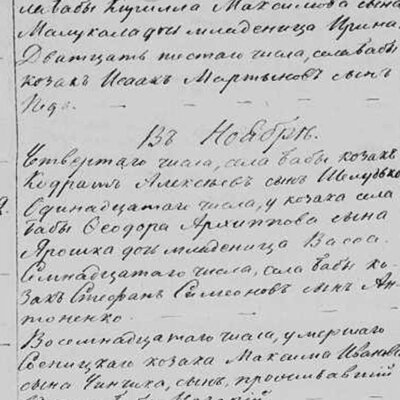 ла Бабы Кирилла Максимова сына
Малукала дочь младеница Ирина.
Дватцать шестаго числа, села Бабы
козакъ Исаакъ Мартыновъ сынъ
Въ Ноябрѣ.
Четвертаго числа, села Бабы козакъ
Кодратъ Алексѣевъ сынъ Шелудько
Одинадцатаго числа, у козака села
Бабы Ѳеодора Архиппова сына
Ярошка дочь младеница Васса.
Семнадцатаго числа, села Бабы ко-
закъ Стефанъ Симеоновъ сынъ Ан-
тоненко.
Восемнадцатаго числа, умершаго
козака Максима Иванова
сына Чинчика, сынъ, проживавшій